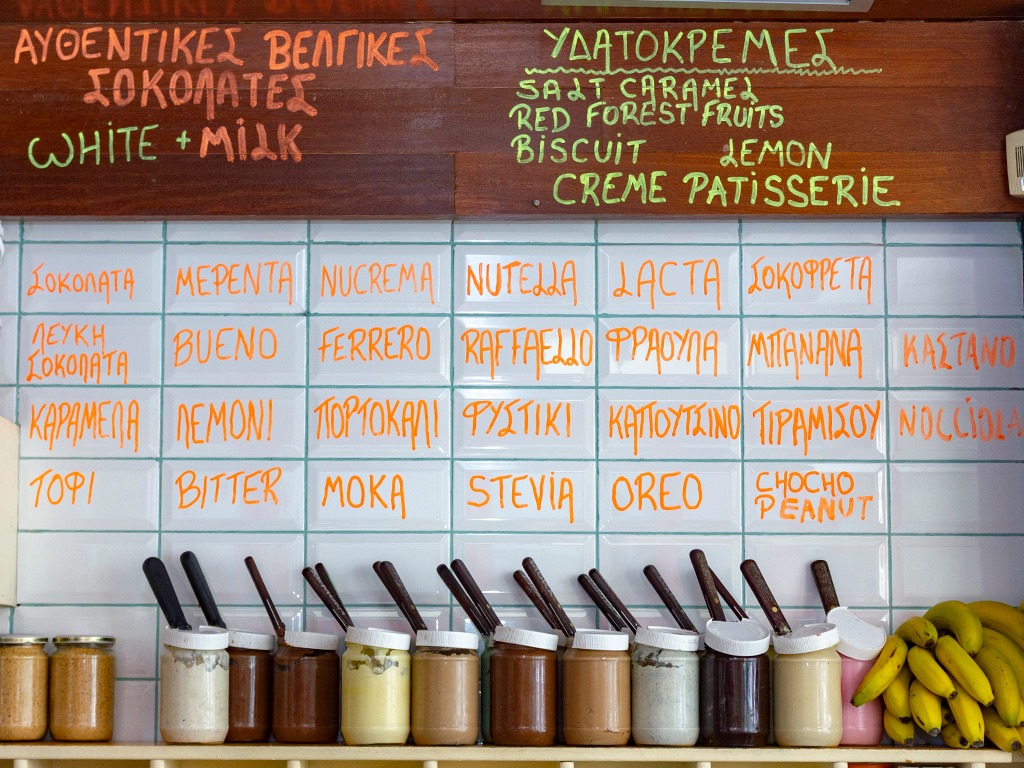 ΑΥΘΕΝΤΙΚΕΣ ΒΕΛΓΙΚΕΣ
ΣΟΚΟΛΑΤΕΣ
WHITE + MILK
ΥΔΑΤΟΚΡΕΜΕΣ
SALT CARAMEL
RED FOREST FRUITS
BISCUIT LEMON
CREME PATISSERIE
ΣΟΚΟΛΑΤΑ ΜΕΡΕΝΤΑ NUCREMA NUTELLA LACTA ΣΟΚΟΦΡΕΤΑ
ΛΕΥΚΗ
ΣΟΚΟΛΑΤΑ BUENO FERRERO RAFFAELLO ΦΡΑΟΥΛΑ ΜΠΑΝΑΝΑ ΚΑΣΤΑΝΟ
ΚΑΡΑΜΕΛΑ ΛΕΜΟΝΙ ΠΟΡΤΟΚΑΛΙ ΦΥΣΤΙΚΙ ΚΑΠΟΥΤΣΙΝΟ ΤΙΡΑΜΙΣΟΥ NOCCIOLA
ΤΟΦΙ BITTER ΜΟΚΑ STEVIA OREO CHOCHO
PEANUT